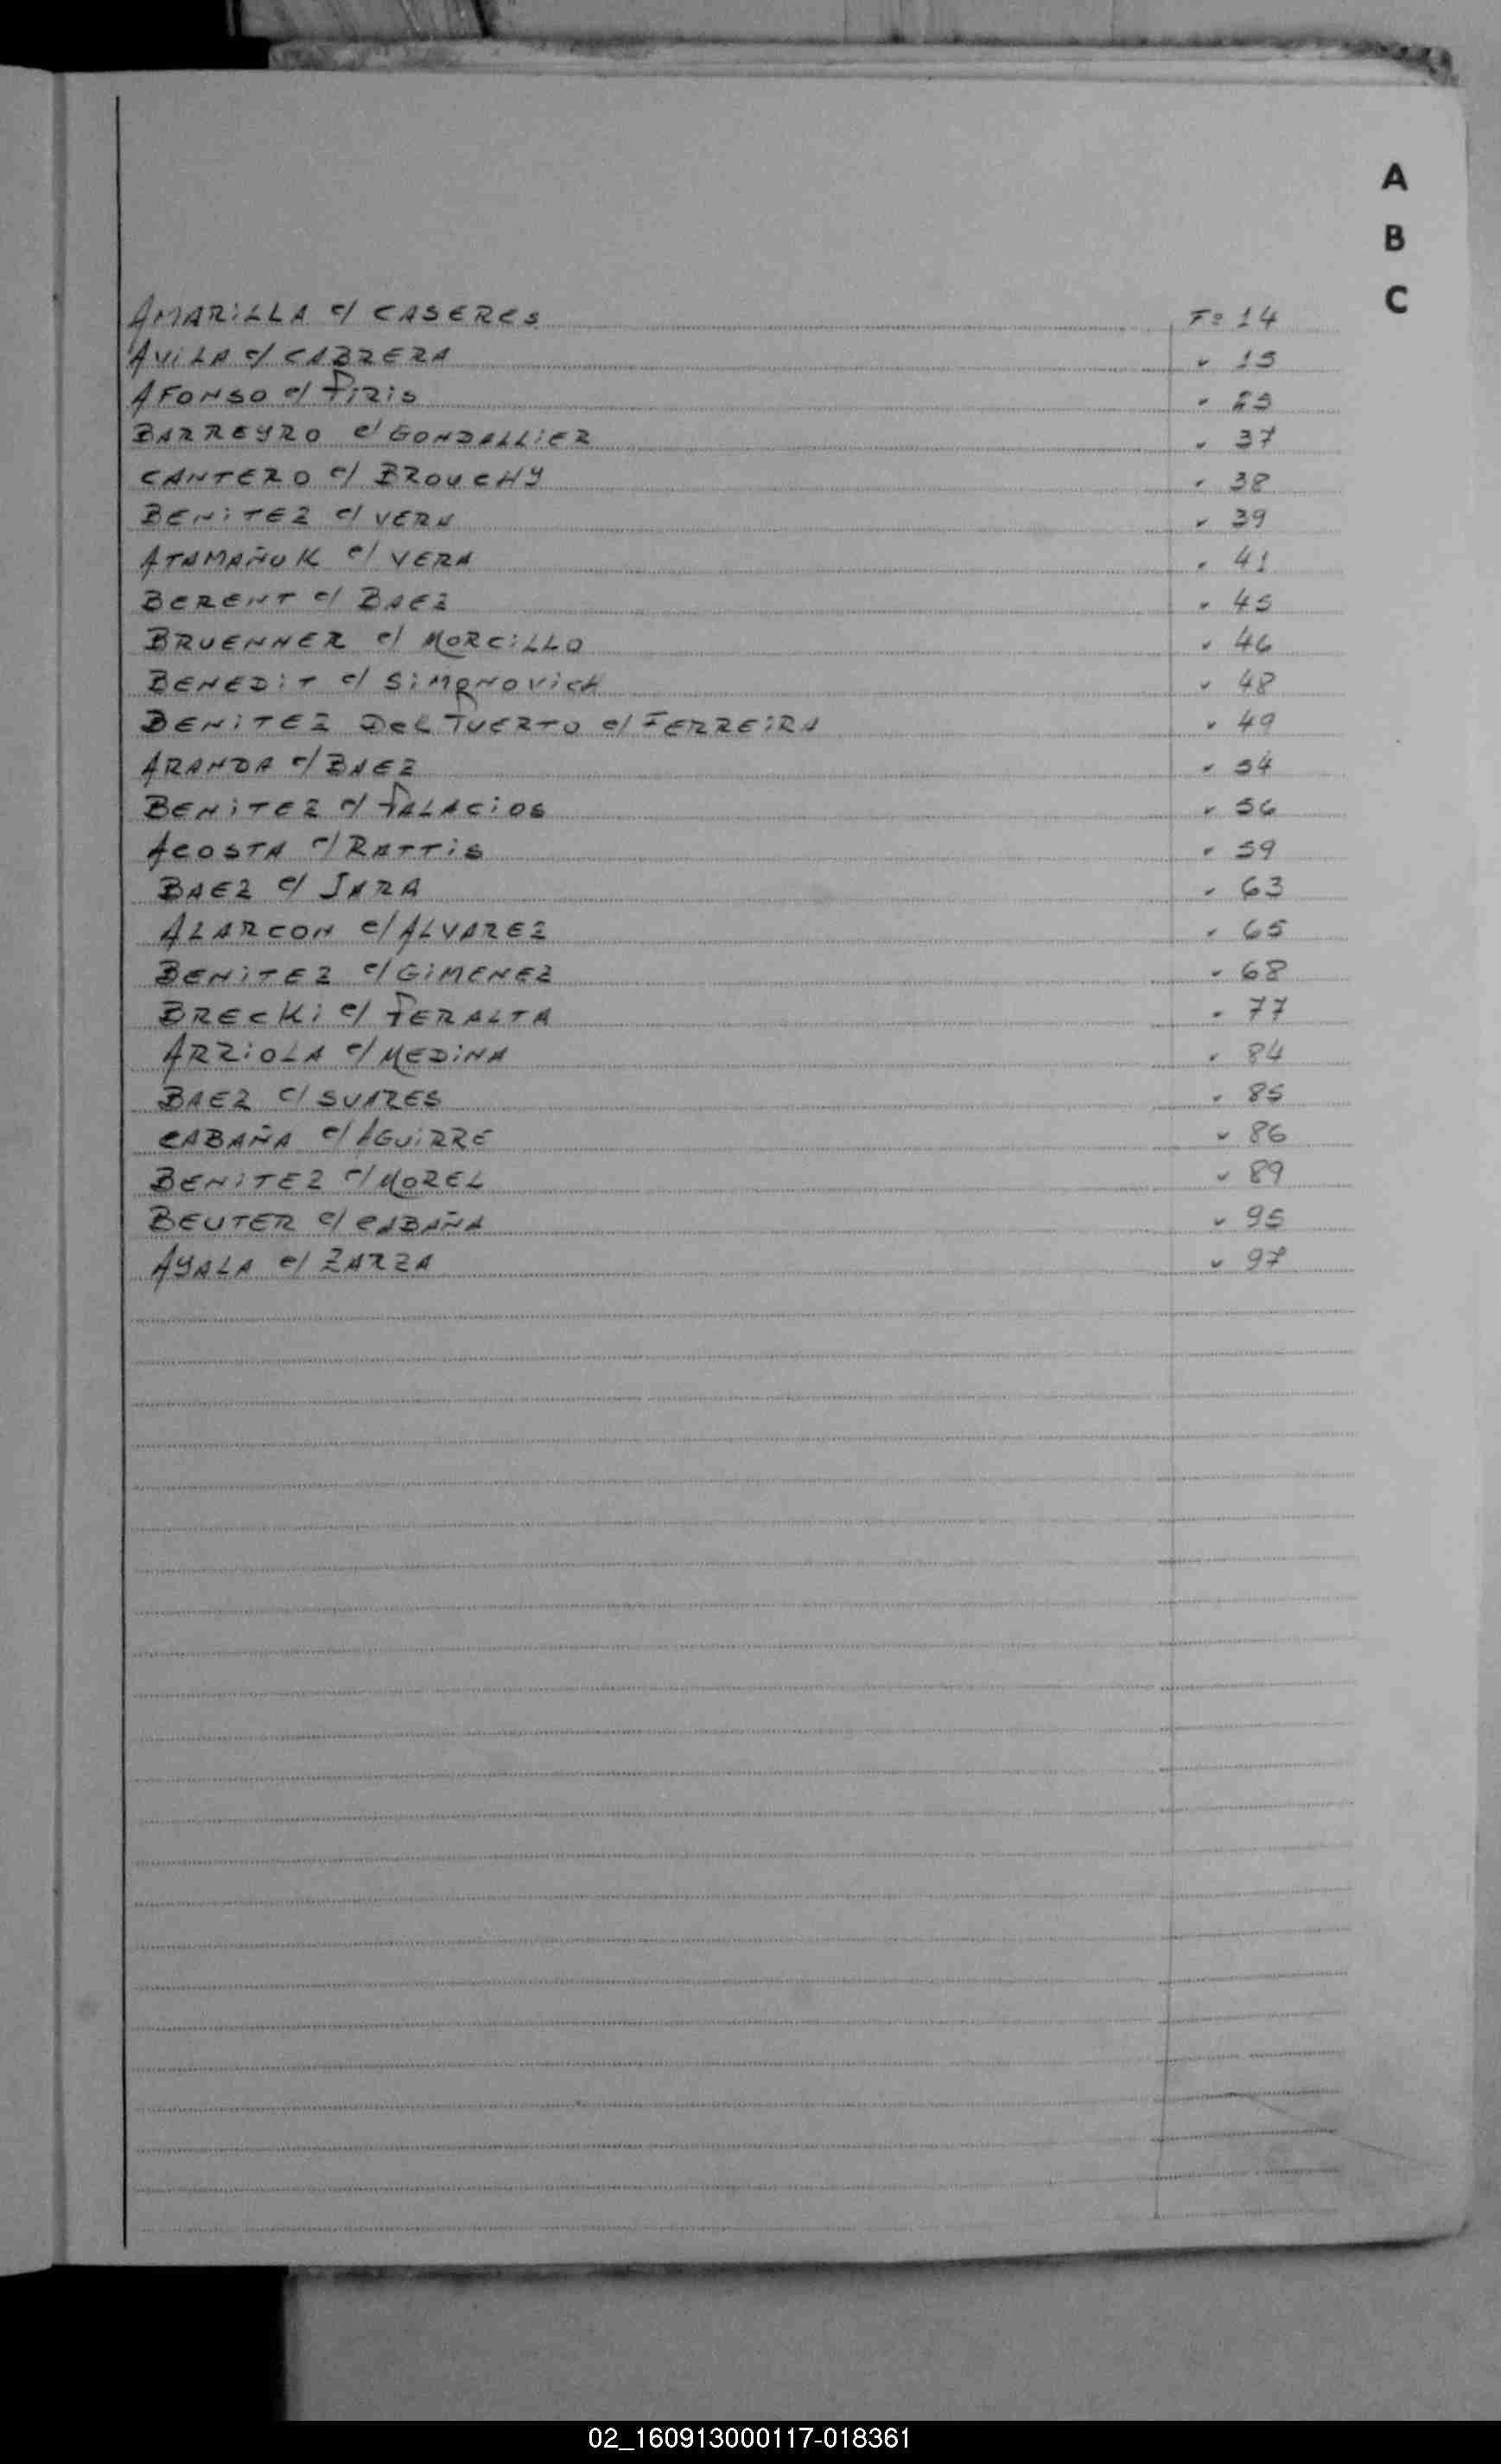 A
B
C
AMARILLA c/ CASERES Fº 14
AVILA c/ CABRERA " 15
AFONSO c/ PIRIS " 25
BARREYRO c/ GONDALLIER " 37
CANTERO c/ BROUCHY " 38
BENITEZ c/ VERA " 39
ATAMAÑUK c/ VERA " 41
BERENT c/ BAEZ " 45
BRUENNER c/ MORCILLO " 46
BENEDIT c/ SIMONOVICH " 48
BENITEZ DEL TUERTO c/ FERREIRA " 49
ARANDA c/ BAEZ " 54
BENITEZ c/ PALACIOS " 56
ACOSTA c/ RATTIS " 59
BAEZ c/ JARA " 63
ALARCON c/ ALVAREZ " 65
BENITEZ c/ GIMENEZ " 68
BRECKI c/ PERALTA " 77
ARRIOLA c/ MEDINA " 84
BAEZ c/ SUARES " 85
CABAÑA c/ AGUIRRE " 86
BENITEZ c/ MOREL " 89
BEUTER c/ CABAÑA " 95
AYALA c/ ZARZA " 97
02_160913000117-018361